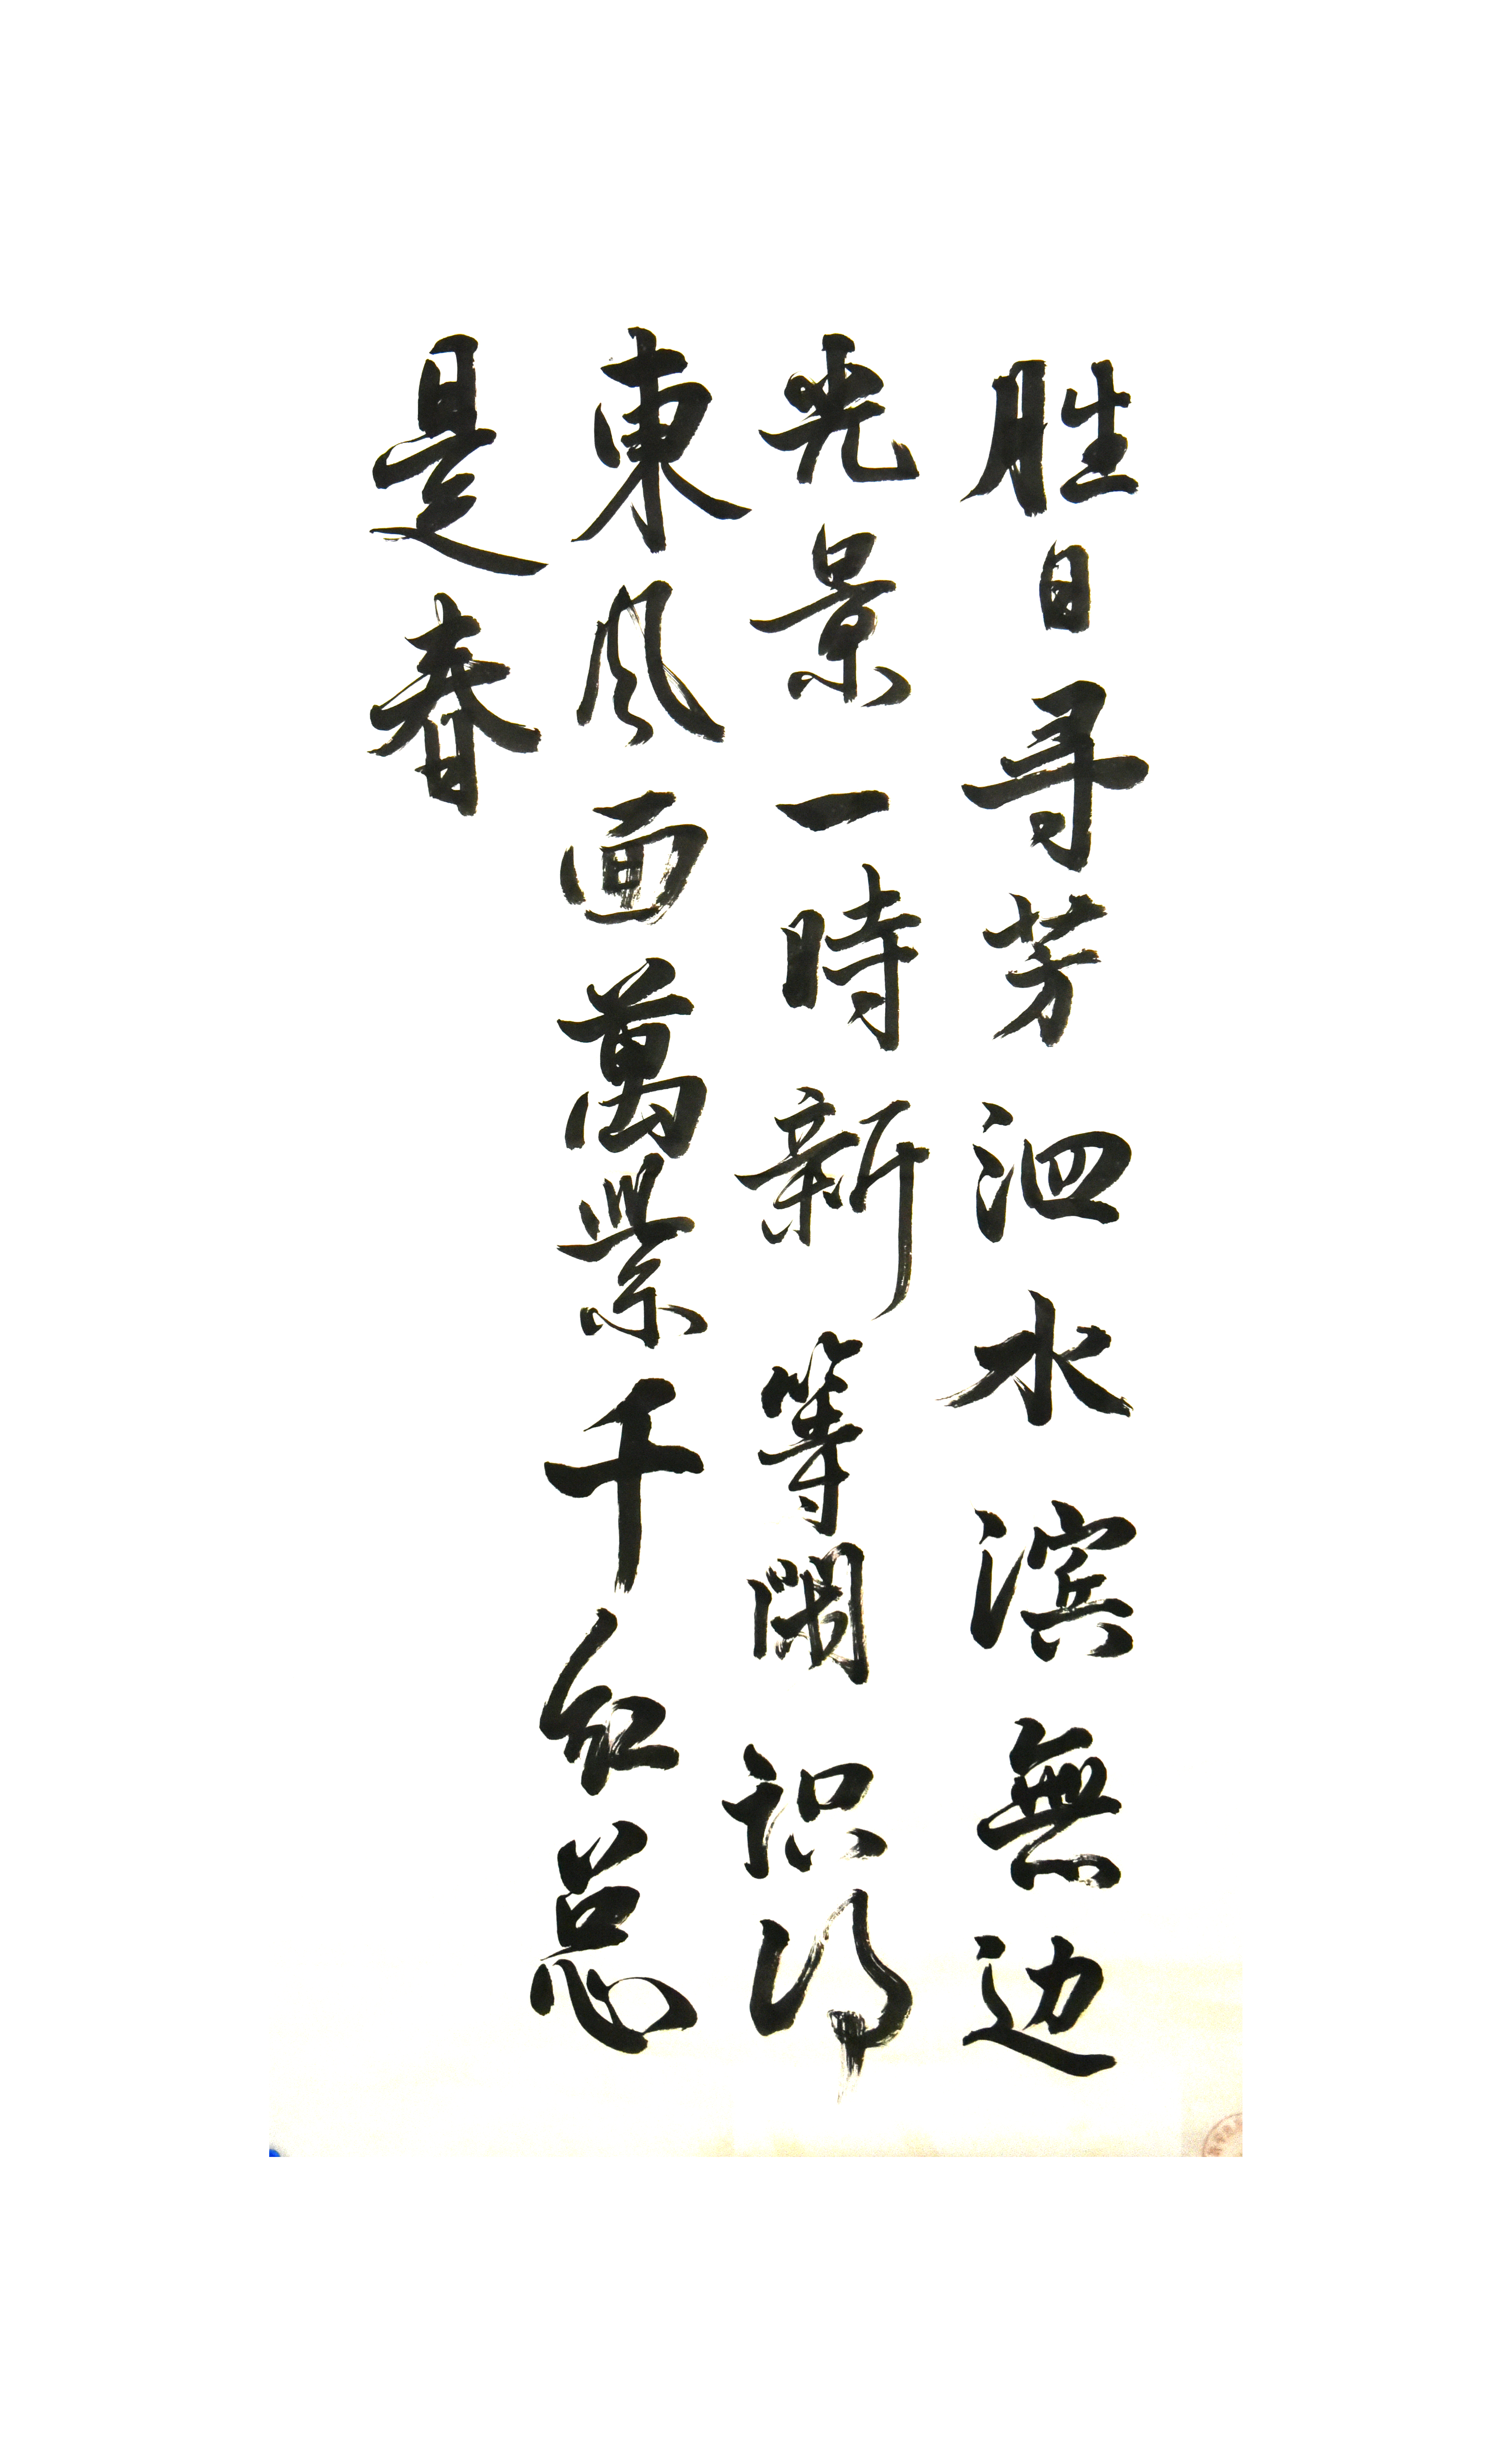 胜日寻芳泗水滨無边
光景一時新等閑识得
東风面萬紫千红总
是春